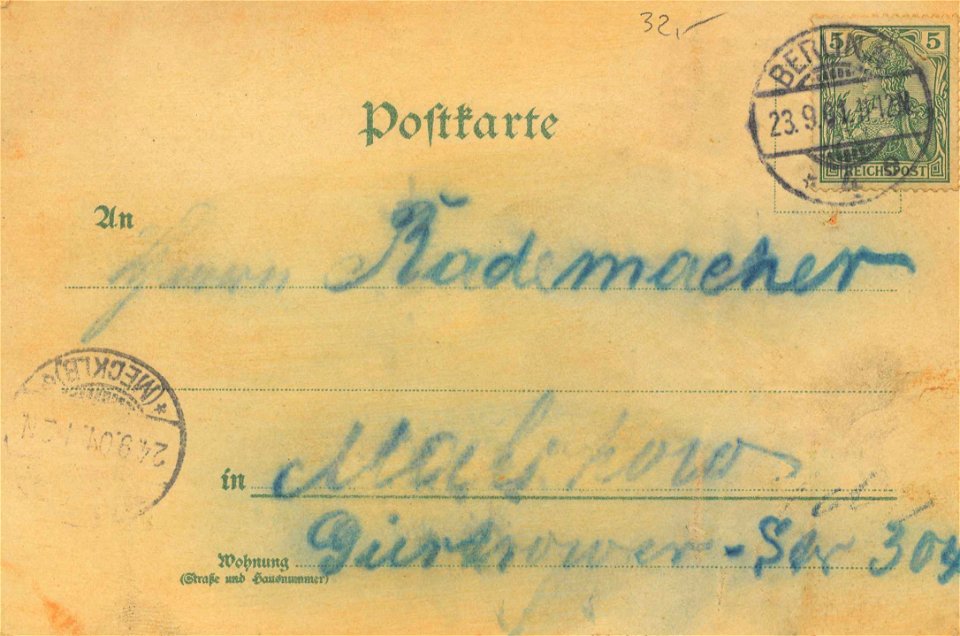 32,-
Postkarte
BERLIN
23.9.01.11-12N.
5 5
REICHSPOST
An
Herrn Rademacher
(MECKLB)
24.9.01.1-2N
in Malchow
Wohnung
(Straße und Hausnummer)
Güstrower-Str 304